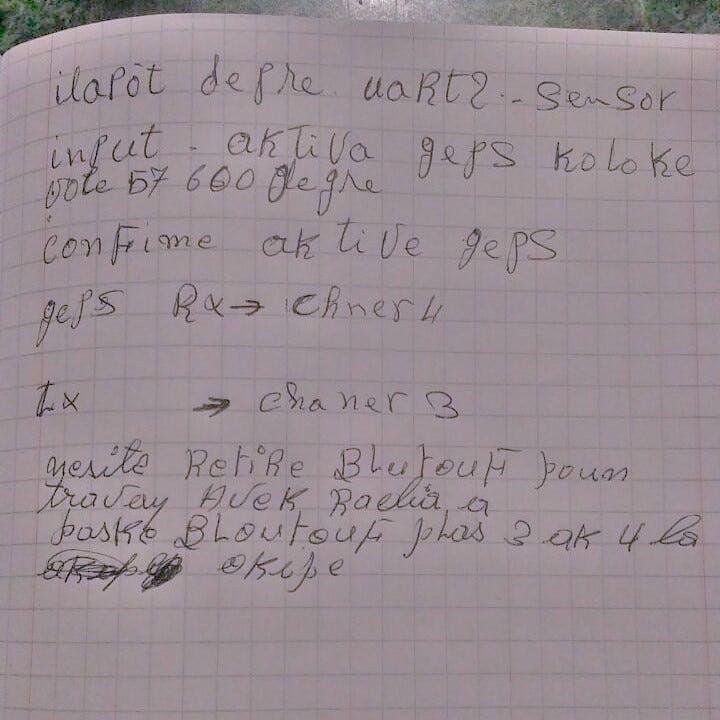 ilapòt degre uaRt2 - sensor
input - aktiva geps koloke
vote 57 600 degre
confrime aktive geps
geps Rx → chner 4
tx → chaner 3
nesite Retire BLutouf poun
travay Avek Radia a
paske BLoutouf plas 3 ak 4 la
okipe